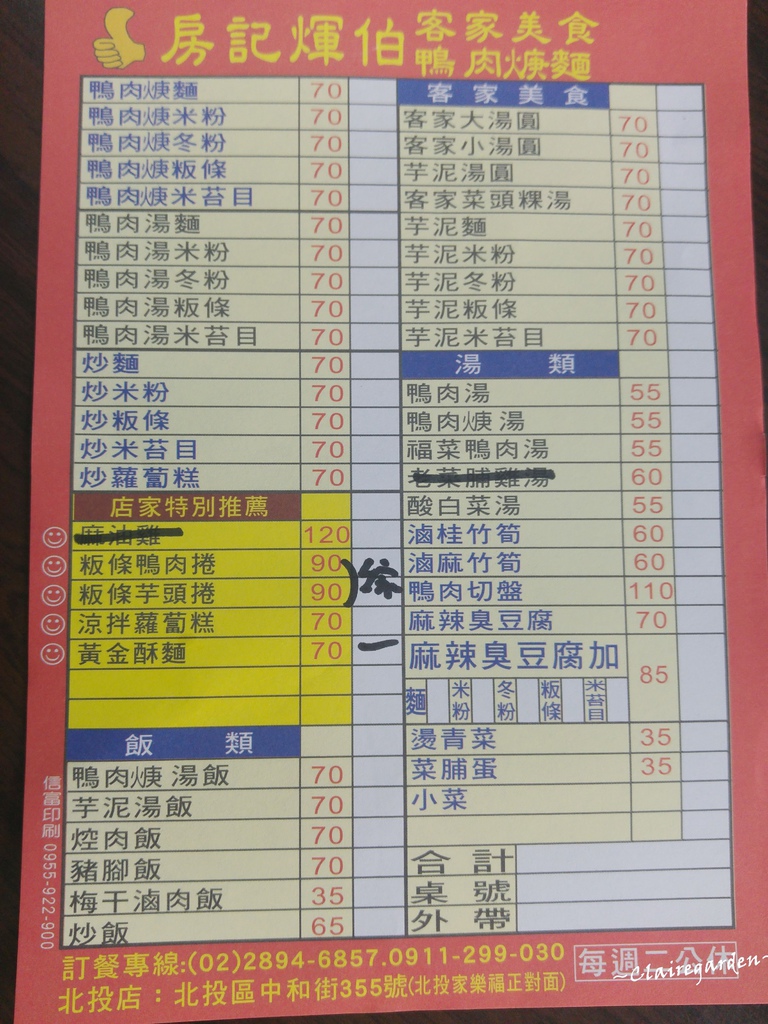 房記煇伯 客家美食
鴨肉焿麵
鴨肉焿麵 70
鴨肉焿米粉 70
鴨肉焿冬粉 70
鴨肉焿粄條 70
鴨肉焿米苔目 70
鴨肉湯麵 70
鴨肉湯米粉 70
鴨肉湯冬粉 70
鴨肉湯粄條 70
鴨肉湯米苔目 70
炒麵 70
炒米粉 70
炒粄條 70
炒米苔目 70
炒蘿蔔糕 70
店家特別推薦
麻油雞 120
粄條鴨肉捲 90
粄條芋頭捲 90
綜
涼拌蘿蔔糕 70
黃金酥麵 70 一
飯類
鴨肉焿湯飯 70
芋泥湯飯 70
焢肉飯 70
豬腳飯 70
梅干滷肉飯 35
炒飯 65
客家美食
客家大湯圓 70
客家小湯圓 70
芋泥湯圓 70
客家菜頭粿湯 70
芋泥麵 70
芋泥米粉 70
芋泥冬粉 70
芋泥粄條 70
芋泥米苔目 70
湯類
鴨肉湯 55
鴨肉焿湯 55
福菜鴨肉湯 55
老菜脯雞湯 60
酸白菜湯 55
滷桂竹筍 60
滷麻竹筍 60
鴨肉切盤 110
麻辣臭豆腐 70
麻辣臭豆腐加 85
麵 米粉 冬粉 粄條 米苔目
燙青菜 35
菜脯蛋 35
小菜
合計
桌號
外帶
信富印刷 0955-922-900
訂餐專線:(02)2894-6857.0911-299-030 每週二公休
北投店：北投區中和街355號(北投家樂福正對面)
~Clairegarden~